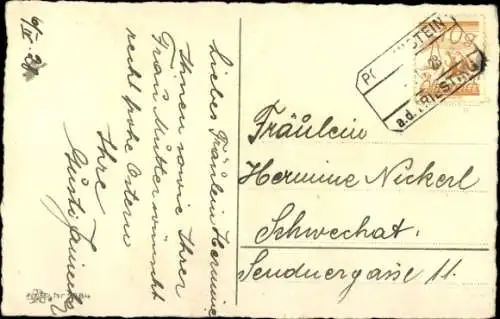 6/IV. 28
Liebes Fräulein Hermine
Ihnen sowie Ihrer
Frau Mutter wünscht
recht frohe Ostern
Ihre
Gusti
10g
STEIN
28
a.d. TRIESTING
Fräulein
Hermine Nickerl
Schwechat.
Sendnergasse 11.